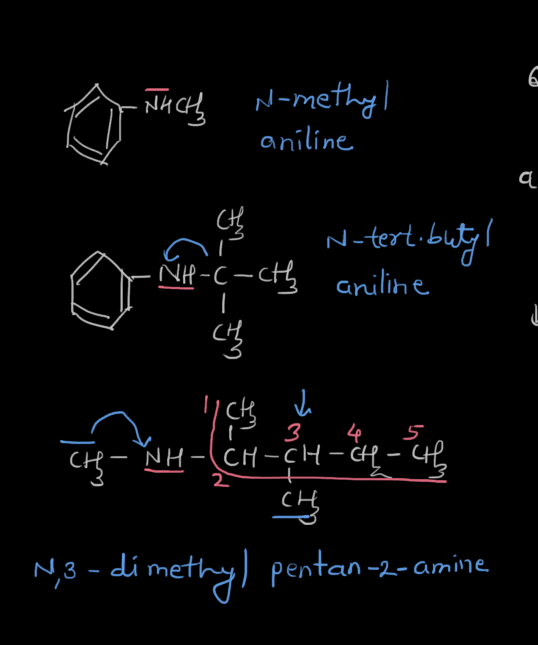 NHCH3 N-methyl
aniline
CH3
NH-C-CH3 N-tert.butyl
aniline
CH3
1 CH3 3 4 5
CH3-NH-CH-CH-CH2-CH3
2
CH3
N,3-dimethyl pentan-2-amine
a